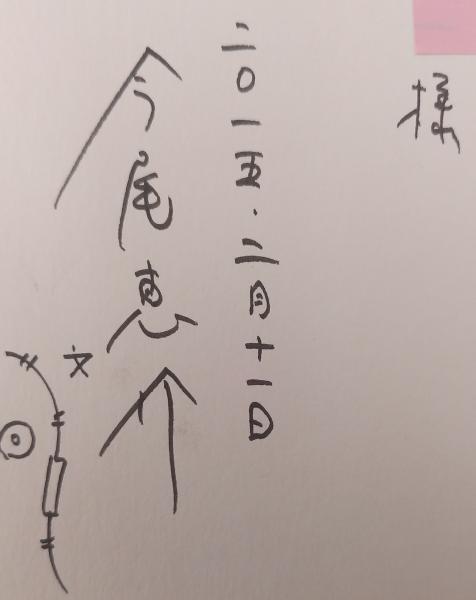 様
二〇一五.二月十一日
今尾恵介